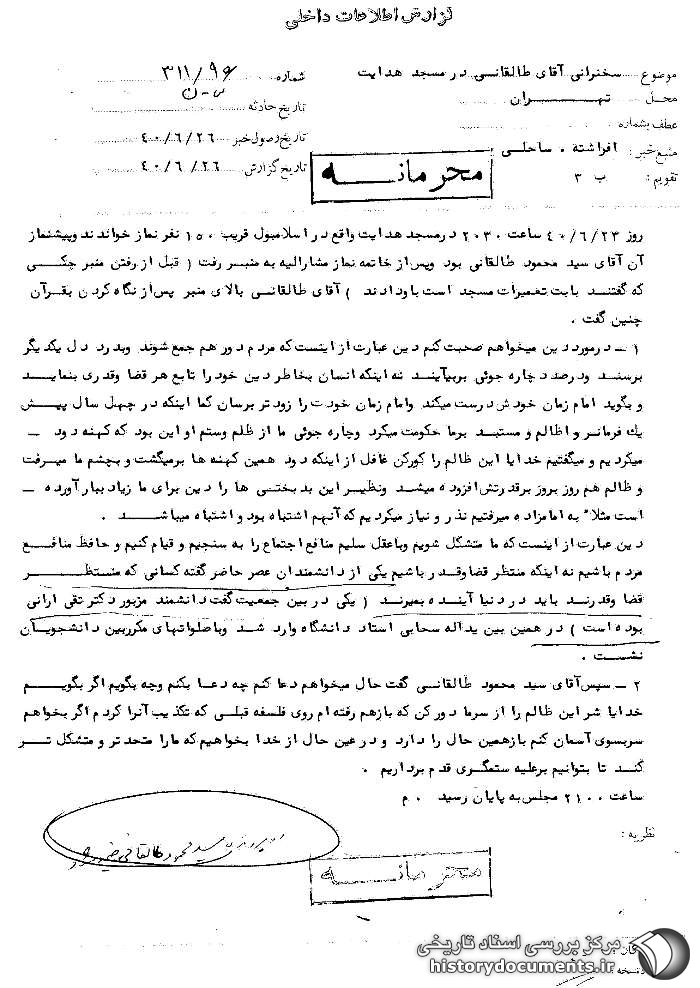 گزارش اطلاعات داخلی
موضوع سخنرانی آقای طالقانی در مسجد هدایت شماره ۳۱۱/۹۶
س-ن
محل تهران تاریخ حادثه
عطف بشماره تاریخ وصول خبر ۴۰/۶/۲۶
منبع خبر: افراشته . ساحلی تاریخ گزارش ۴۰/۶/۲۶
تقویم: ب ۳ محرمانه
روز ۴۰/۶/۲۳ ساعت ۲۰۳۰ درمسجد هدایت واقع در اسلامبول قریب ۱۵۰ نفر نماز خواندند وپیشنماز
آن آقای سید محمود طالقانی بود وپس از خاتمه نماز مشارالیه به منبر رفت ( قبل از رفتن منبر چکی
که گفتند بابت تعمیرات مسجد است باو دادند ) آقای طالقانی بالای منبر پس از نگاه کردن بقرآن
چنین گفت .
۱ – در مورد دین میخواهم صحبت کنم دین عبارت از اینست که مردم دور هم جمع شوند وبدرد دل یکدیگر
برسند ودرصدد چاره جوئی بربیآیند نه اینکه انسان بخاطر دین خود را تابع هر قضا وقدری بنماید
و بگوید امام زمان خودش درست میکند وامام زمان خودت را زودتر برسان کما اینکه در چهل سال پیش
یك فرمانروا ظالم و مستبد برما حکومت میکرد وچاره جوئی ما از ظلم وستم او این بود که کهنه دود –
میکردیم و میگفتیم خدایا این ظالم را کورکن غافل از اینکه دود همین کهنه ها برمیگشت و بچشم ما میرفت
و ظالم هم روز بروز برقدرتش افزوده میشد ونظیر این بدبختی ها را دین برای ما زیاد ببار آورده –
است مثلاً به امامزاده میرفتیم نذر و نیاز میکردیم که آنهم اشتباه بود و اشتباه میباشد .
دین عبارت از اینست که ما متشکل شویم وباعقل سلیم منافع اجتماع را به سنجیم و قیام کنیم و حافظ منافع
مردم باشیم نه اینکه منتظر قضاوقدر باشیم یکی از دانشمندان عصر حاضر گفته کسانی که منتظر
قضا وقدرند باید در دنیا آینده بمیرند ( یکی در بین جمعیت گفت دانشمند مزبور دکتر تقی ارانی
بوده است ) در همین بین یداله سحابی استاد دانشگاه وارد شد وباصلواتهای مکرربین دانشجویان
نشست .
۲ – سپس آقای سید محمود طالقانی گفت حال میخواهم دعا کنم چه دعا بکنم وچه بگویم اگر بگویم
خدایا شر این ظالم را از سرما دور کن که بازهم رفته ام روی فلسفه قبلی که تکذیب آنرا کردم اگر بخواهم
سربسوی آسمان کنم بازهمین حال را دارد و در عین حال از خدا بخواهیم که مارا متحدتر و متشکل تر
کند تا بتوانیم برعلیه ستمگری قدم برداریم .
ساعت ۲۱۰۰ مجلس به پایان رسید . م
نظریه :
سید محمود طالقانی
محرمانه
مرکز بررسی اسناد تاریخی
historydocuments.ir